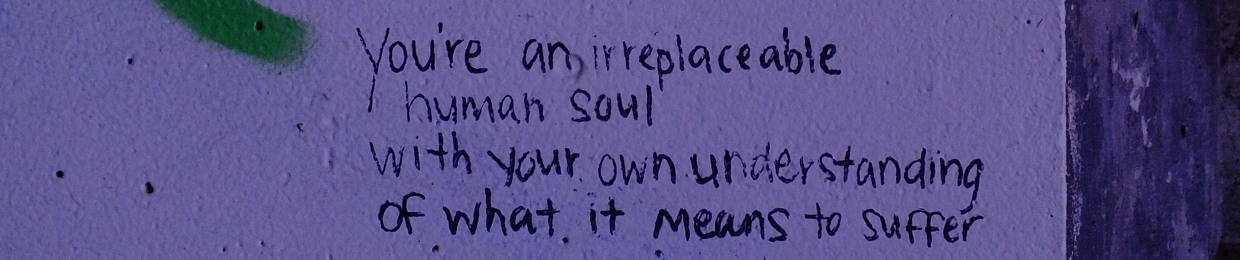 You're an irreplaceable
human soul
with your own understanding
of what it means to suffer